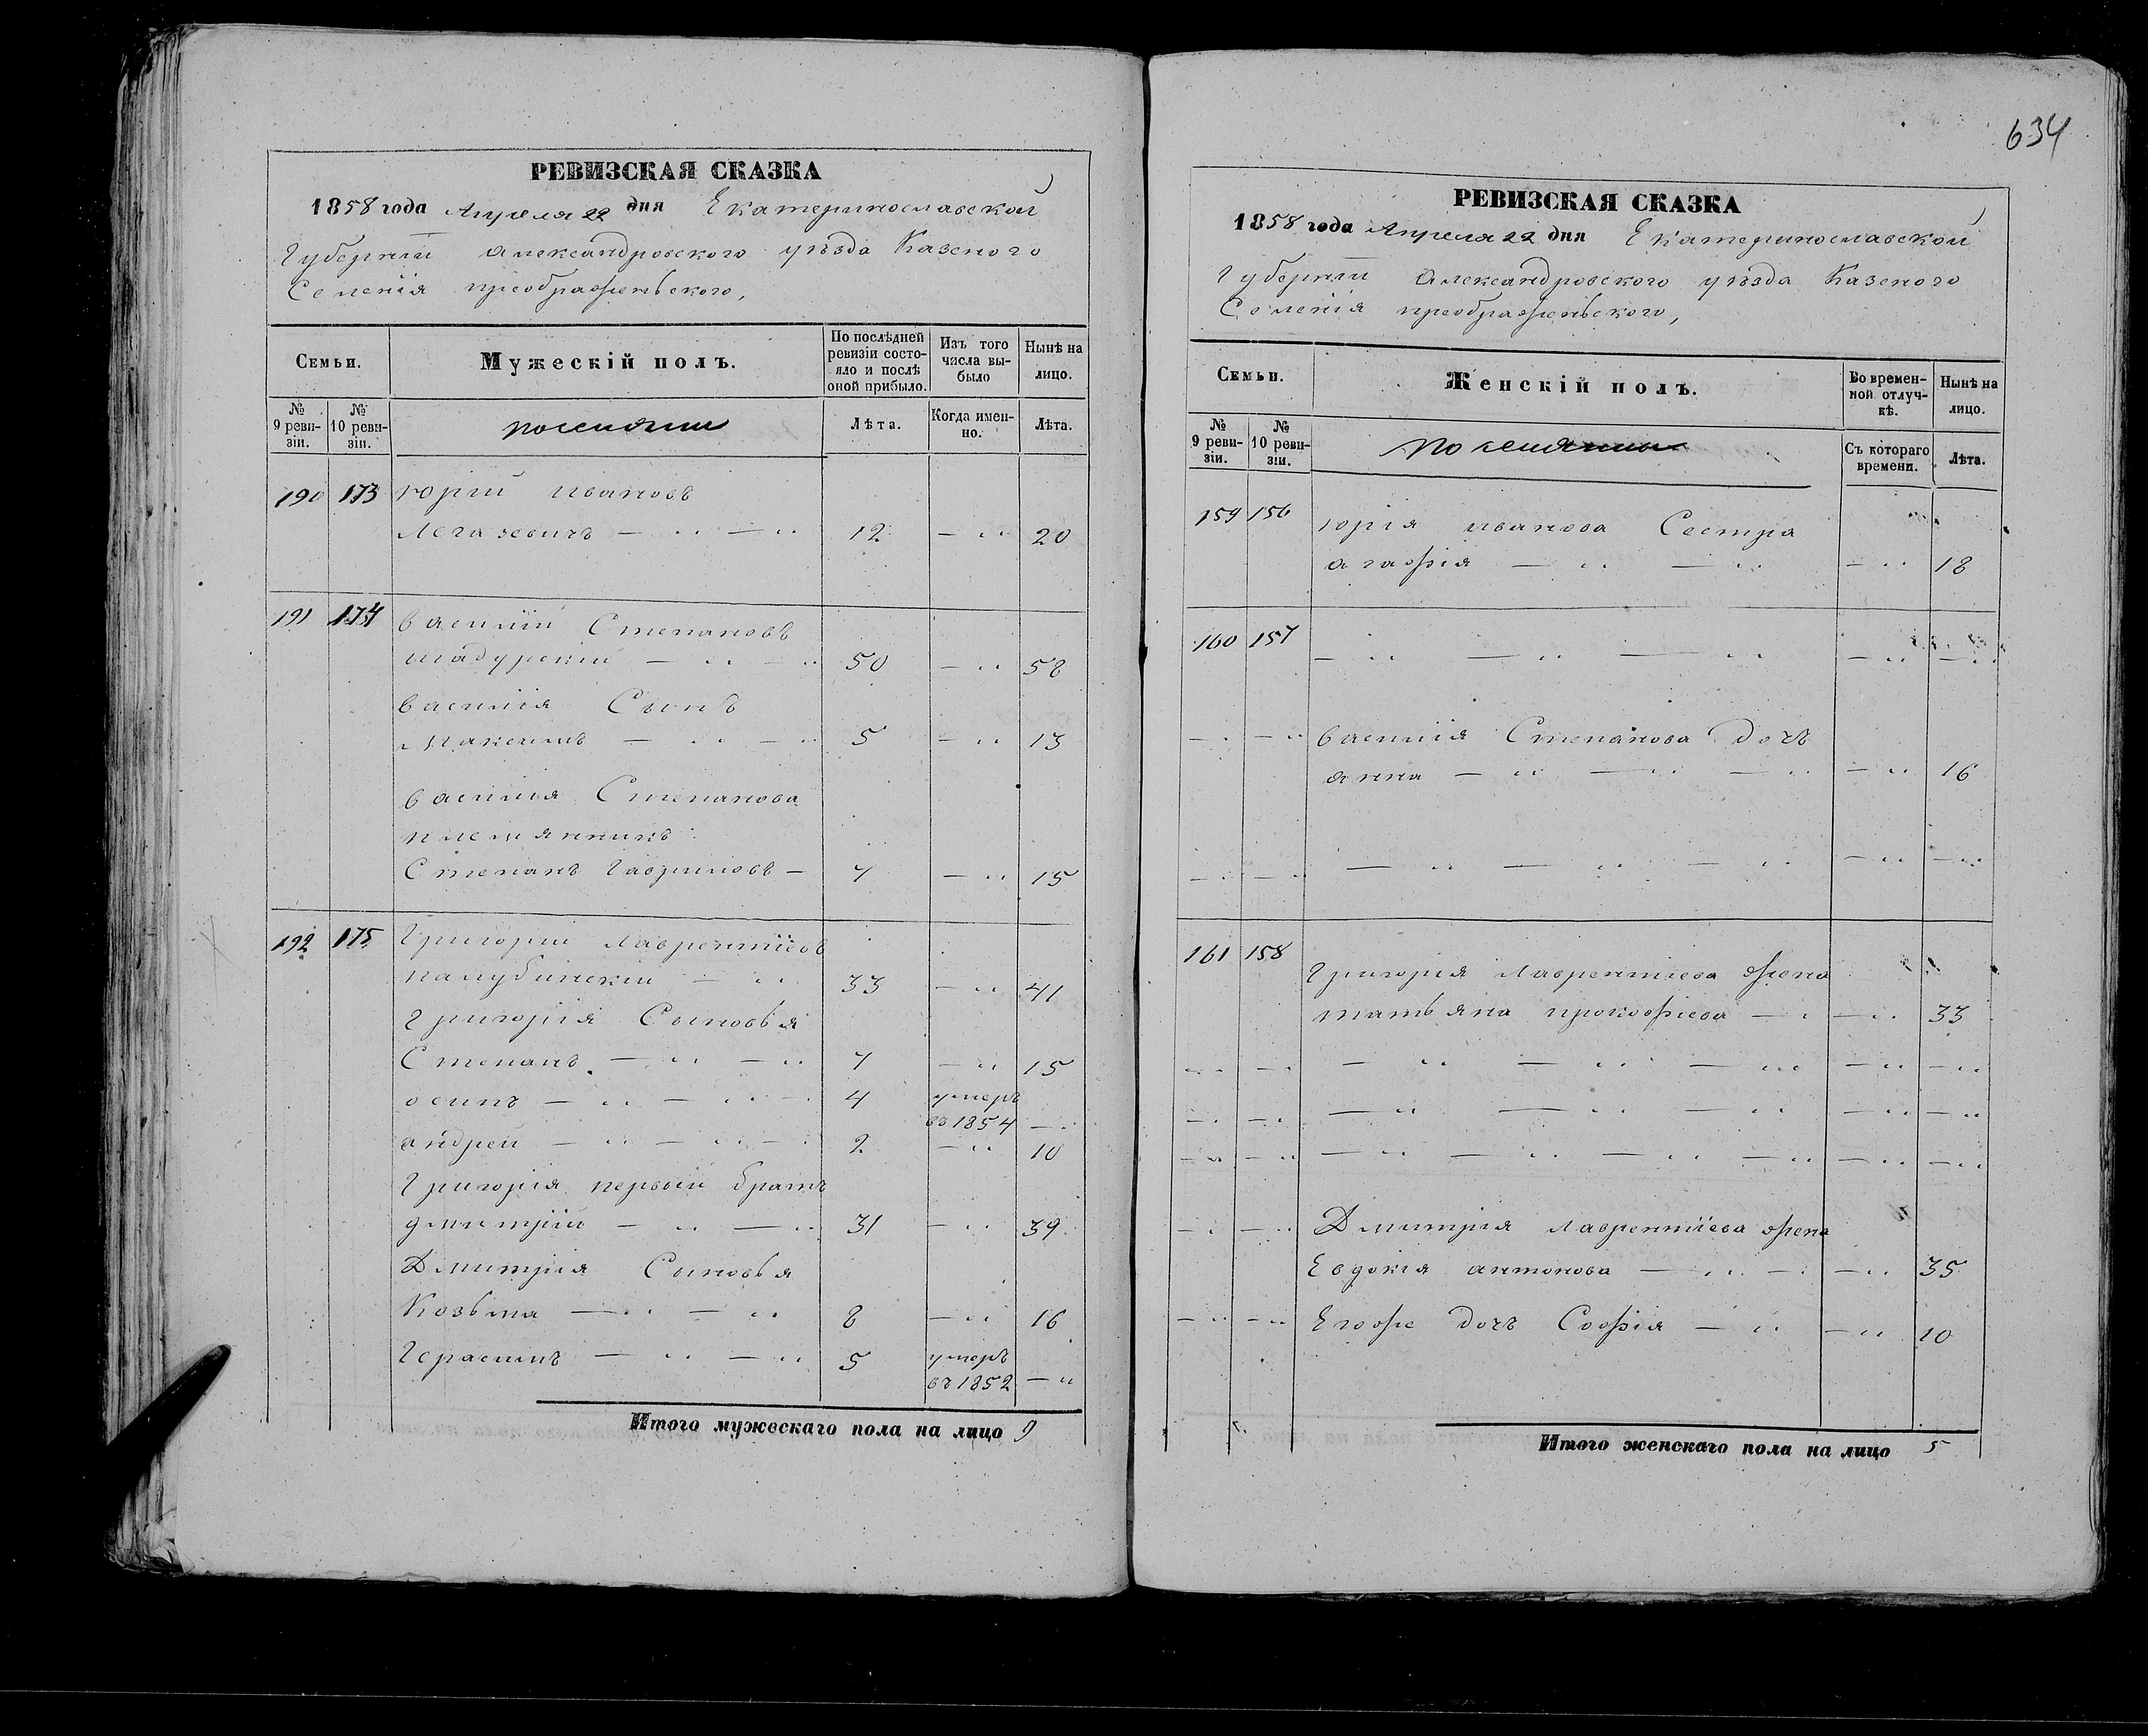 РЕВИЗСКАЯ СКАЗКА
1858 года Апреля 22 дня Екатеринославской
Губерніи Александровского уѣзда Казеного
Селенія преображеньского,
Семьи.
Мужескій полъ.
По послѣдней ревизіи состояло и послѣ оной прибыло.
Изъ того числа выбыло
Нынѣ на лицо.
№ 9 ревизіи.
№ 10 ревизіи.
поселяни
Лѣта.
Когда именно.
Лѣта.
190 173 юрій ивановъ
— " — " 12 — " 20
191 174 василій Степановъ
шадурскій — " — " 50 — " 58
василія Сынъ
Максимъ — " — " 5 — " 13
василія Степанова
племянникъ
Степанъ Гавриловъ — 7 — " 15
192 175 Григорій лаврентіевъ
палубинскій — " 33 — " 41
Григорія Сыновья
Степанъ — " — " 7 — " 15
осипъ — " — " — 4 умеръ
въ 1854 — "
андрей — " — " — 2 — " 10
Григорія первый братъ
дмитрій — " — " 31 — " 39
Дмитрія Сыновья
Козьма — " — " 8 — " 16
Герасимъ — " — " 5 умеръ
въ 1852 — "
Итого мужескаго пола на лицо 9
634
РЕВИЗСКАЯ СКАЗКА
1858 года Апреля 22 дня Екатеринославской
Губерніи Александровского уѣзда Казеного
Селенія преображеньского,
Семьи.
Женскій полъ.
Во временной отлучкѣ.
Нынѣ на лицо.
№ 9 ревизіи.
№ 10 ревизіи.
поселянки
Съ котораго времени.
Лѣта.
159 156 юрія иванова Сестра
агафія — " — " — " 18
160 157 — " — " — " — " — "
— " — " василія Степанова дочь
анна — " — " — " — " 16
— " — " — " — " — " — " — "
161 158
Григорія лаврентіева жена
татьяна прокофіева — " — " 33
— " — " — " — " — " — " — "
— " — " — " — " — " — " — "
— " — " — " — " — " — " — " — "
— " — " Дмитрія лаврентіева жена
Евдокія антонова — " — " — " 35
— " — " Егоже дочь Софія — " — " 10
Итого женскаго пола на лицо 5